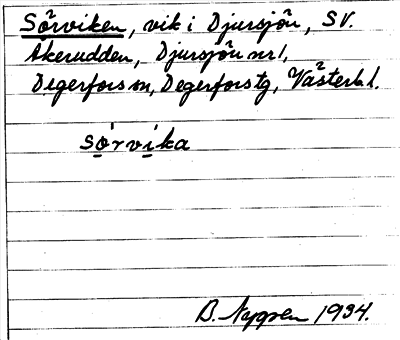 Sörviken, vik i Djursjön, SV.
Åkerudden, Djursjön nr 1,
Degerfors sn, Degerfors tg, Västerb. l.
sörvika
B. Nygren 1934.